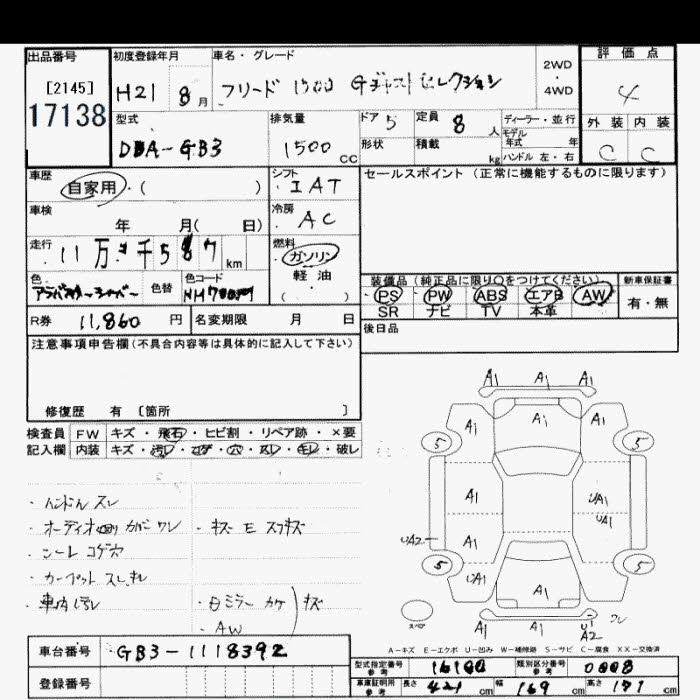 出品番号
[2145]
17138
初度登録年月
H21 8月
車名・グレード
フリード 1500 Gジャストセレクション
2WD
・
4WD
評価点
4
型式
DBA-GB3
排気量
1500 CC
ドア 5
定員 8 人
形状
積載 kg
ディーラー・並行
モデル年式 年
ハンドル 左・右
外装 内装
C C
車歴
自家用・( )
シフト
IAT
セールスポイント(正常に機能するものに限ります)
車検
年 月( 日)
冷房
AC
走行
11万 千587 km
燃料
ガソリン
軽油
( )
色
色替
色コード
装備品(純正品に限り○をつけてください)
PS・PW・ABS・エアB・AW
SR ナビ TV 本革
新車保証書
有・無
R券 11,860 円
名変期限 月 日
後日品
注意事項申告欄(不具合内容等は具体的に記入して下さい)
修復歴 有 [箇所 ]
検査員 FW キズ・飛石・ヒビ割・リペア跡・×要
記入欄 内装 キズ・汚レ・コゲ・穴・スレ・キレ・破レ
・ハンドルスレ
・オーディオ カバーワレ
・キズ E スリキズ
・シートコゲ穴
・カーペットスレ キレ
・車内汚レ
・Bミラー カケ キズ
・AW
A1 A1 A1
A1 A1 A1
5 5
A1 UA1
UA1
UA2 A1
5 5
UA1 A1
スペア
A1 A1 U1
A2
A-キズ E-エクボ U-凹み W-補修跡 S-サビ C-腐食 XX-交換済
車台番号 GB3-1118392
登録番号
型式指定番号 参考 16100
類別区分番号 参考 0008
車庫証明用 参考 長さ 421 cm 幅 169 cm 高さ 171 cm